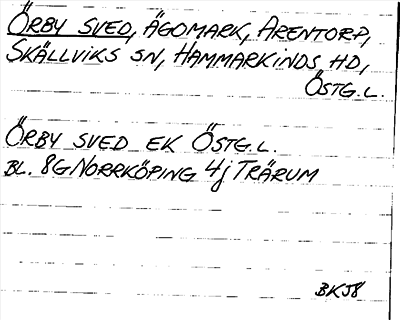 ÖRBY SVED, ÄGOMARK, ARENTORP,
SKÄLLVIKS SN, HAMMARKINDS HD,
ÖSTG.L.
ÖRBY SVED EK ÖSTG.L.
BL. 8G NORRKÖPING 4j TRÄRUM
BKJ8